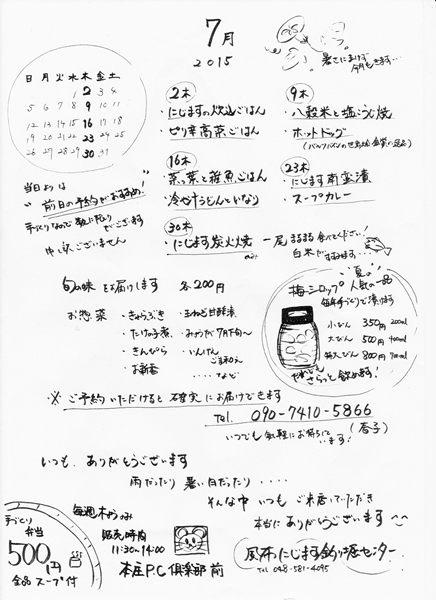 7月
2015
暑さにまけず
今月もきます…
日 月 火 水 木 金 土
2 3 4
5 6 7 8 9 10 11
12 13 14 15 16 17 18
19 20 21 22 23 24 25
26 27 28 29 30 31
当日よりは
前日の予約がおすすめ!
手づくりなので数に限りがございます
申し訳ございません
2木
・にじますの炊込ごはん
・ピリ辛高菜ごはん
9木
・八穀米と塩こうじ焼
・ホットドッグ
16木
・菜っ葉と稚魚ごはん
・冷や汁うどんといなり
23木
・にじます南蛮漬
・スープカレー
30木
・にじます炭火焼
一尾まるまる食べてください!
白米がすすみます…
旬の味 をお届けします 各200円
お惣菜
・きゃらぶき
・玉ねぎ甘酢漬
・たけの子煮
・みょうが7月下旬〜
・きんぴら
・いんげんごま和え
・お新香
‥‥など
夏の
梅シロップ 人気の一品
毎年手づくりで漬けます
小びん 350円 200ml
大びん 500円 400ml
特大びん 800円 700ml
だれでもさらっと飲める!
※ ご予約いただけると確実にお届けできます
Tel. 090-7410-5866
(杏子)
いつでも気軽にお待ちしています!
いつも ありがとうございます
雨だったり 暑い日だったり ‥‥
そんな中 いつも ご来店いただき
本当に ありがとうございます
手づくり弁当
500円
全品スープ付
毎週木よう のみ
販売時間
11:30〜14:00
本庄P.C倶楽部 前
風布にじます釣り堀センター
Tel 048-581-4095